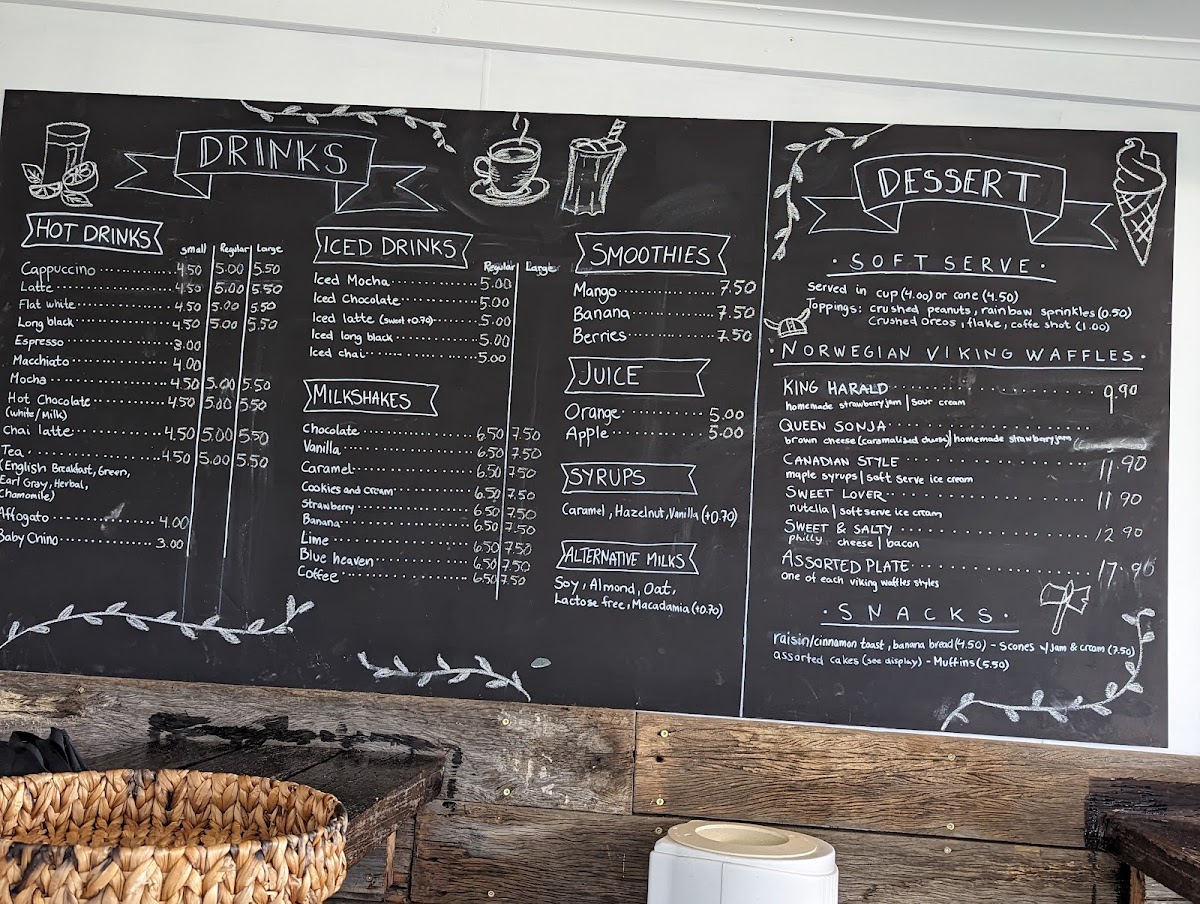 DRINKS
HOT DRINKS
small Regular Large
Cappuccino 4.50 5.00 5.50
Latte 4.50 5.00 5.50
Flat white 4.50 5.00 5.50
Long black 4.50 5.00 5.50
Espresso 3.00
Macchiato 4.00
Mocha 4.50 5.00 5.50
Hot Chocolate 4.50 5.00 5.50
(white/Milk)
chai latte 4.50 5.00 5.50
Tea 4.50 5.00 5.50
(English Breakfast, Green,
Earl Gray, Herbal,
Chamomile)
Affogato 4.00
Baby Chino 3.00
ICED DRINKS
Regular Large
Iced Mocha 5.00
Iced Chocolate 5.00
Iced latte (sweet +0.70) 5.00
Iced long black 5.00
Iced chai 5.00
MILKSHAKES
Chocolate 6.50 7.50
Vanilla 6.50 7.50
Caramel 6.50 7.50
Cookies and cream 6.50 7.50
Strawberry 6.50 7.50
Banana 6.50 7.50
Lime 6.50 7.50
Blue heaven 6.50 7.50
Coffee 6.50 7.50
SMOOTHIES
Mango 7.50
Banana 7.50
Berries 7.50
JUICE
Orange 5.00
Apple 5.00
SYRUPS
Caramel, Hazelnut, Vanilla (+0.70)
ALTERNATIVE MILKS
Soy, Almond, Oat,
Lactose free, Macadamia (+0.70)
DESSERT
SOFT SERVE
Served in cup (4.00) or cone (4.50)
Toppings: crushed peanuts, rainbow sprinkles (0.50)
crushed oreos, flake, coffe shot (1.00)
NORWEGIAN VIKING WAFFLES
KING HARALD 9.90
homemade strawberry jam | sour cream
QUEEN SONJA
brown cheese (caramalised cheese) | homemade strawberry jam
CANADIAN STYLE 11.90
maple syrups | soft serve ice cream
SWEET LOVER 11.90
nutella | soft serve ice cream
SWEET & SALTY 12.90
philly cheese | bacon
ASSORTED PLATE 17.90
one of each viking waffles styles
SNACKS
raisin/cinnamon toast, banana bread (4.50) - scones w/ jam & cream (7.50)
assorted cakes (see display) - Muffins (5.50)